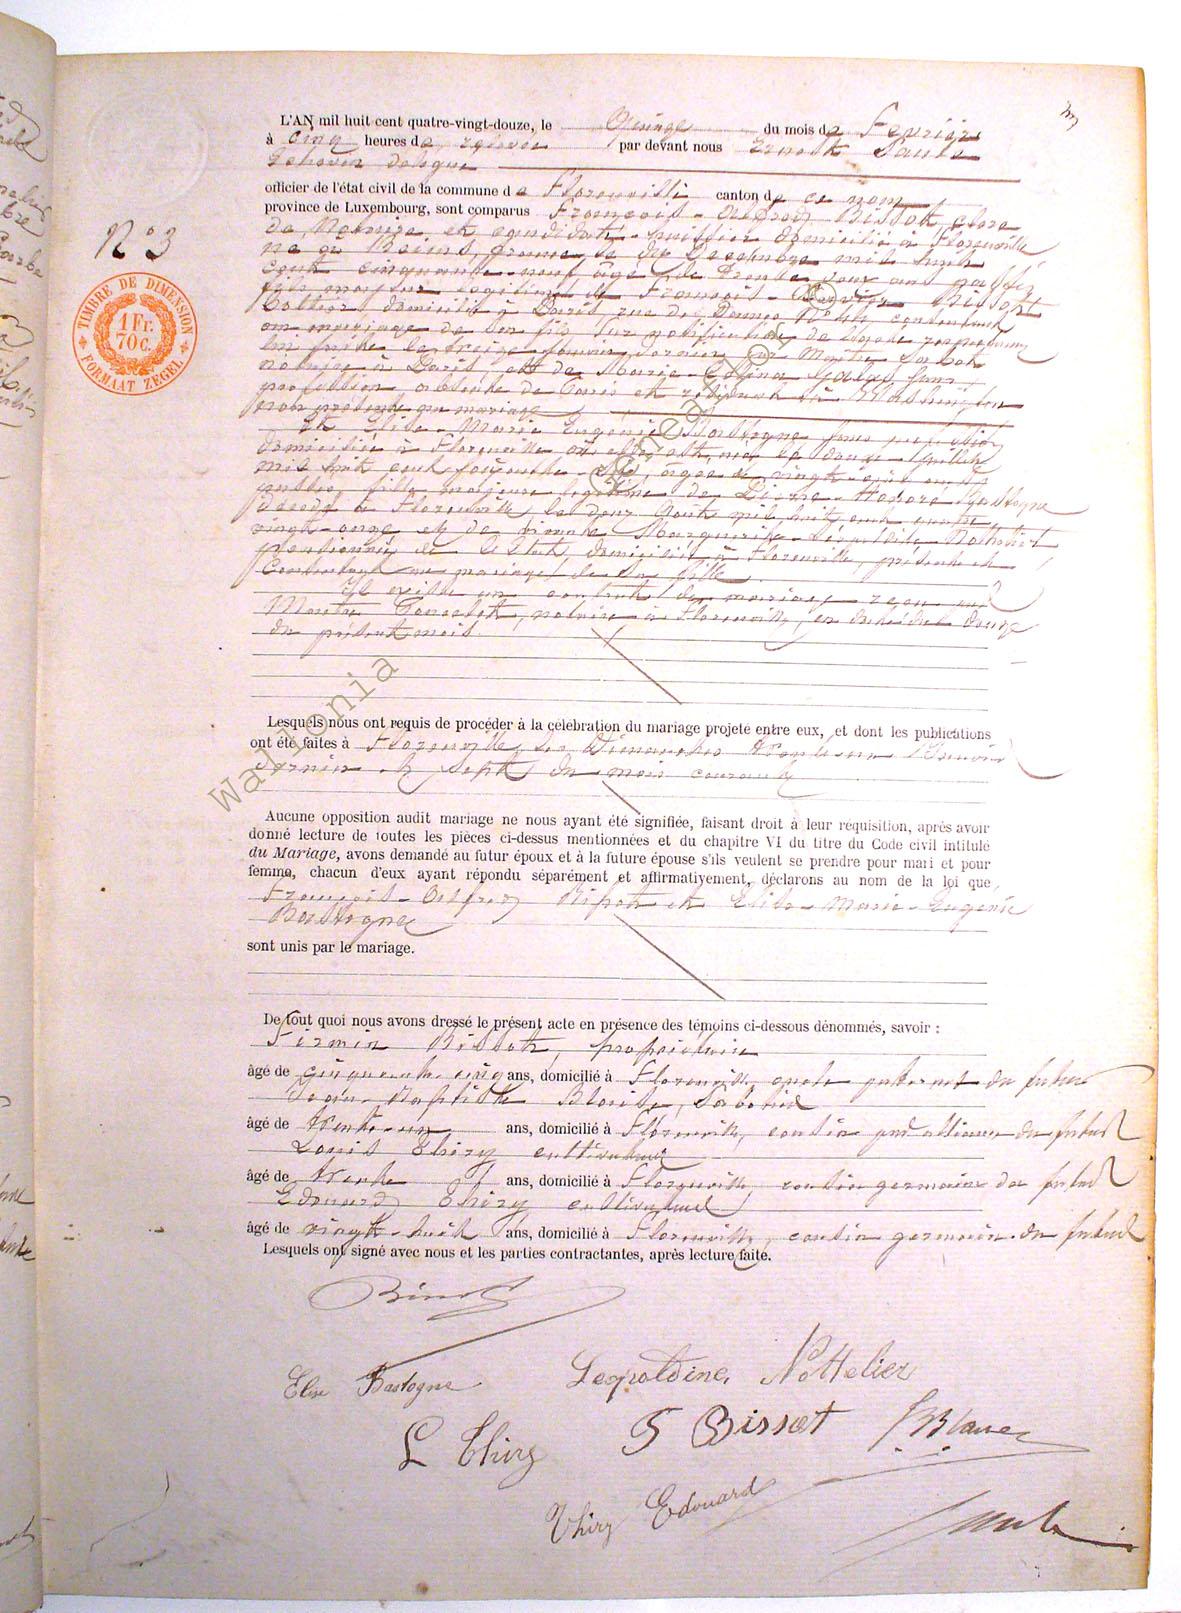 L'AN mil huit cent quatre-vingt-douze, le Quinze du mois de Fevrier
à cinq heures de relevée par devant nous Ernest Sauts
Echevin délégué
officier de l'état civil de la commune de Florenville canton de ce nom
province de Luxembourg, sont comparus François-Alfred Bissot, clerc
N° 3
de Notaire et candidat huissier domicilié à Florenville
né à Reims, le dix Decembre mil huit
cent cinquante-neuf âgé de trente deux ans passés
fils majeur légitime de François-Xavier Bissot
domicilié à Paris, rue de consentant
au mariage de son fils par notification de l'acte respectueux
lui faite le treize Janvier dernier par Maître
notaire à Paris, et de Marie sans
profession absente de Paris et résidant à Washington
non présente au mariage
Et Elise-Marie Eugénie Bastogne sans profession
domiciliée à Florenville où elle est née le douze Juillet
mil huit cent soixante-six, âgée de vingt-cinq ans
fille majeure légitime de Pierre-Honoré Bastogne
décédé à Florenville le deux Août mil huit cent quatre
vingt-onze et de Marguerite-Léopoldine Nothelier
pensionnée de l'Etat, domiciliée à Florenville, présente et
Consentant au mariage de sa fille.
Il existe un contrat de mariage reçu par
Maître Poncelet, notaire à Florenville, en date du douze
du présent mois.
Lesquels nous ont requis de procéder à la célébration du mariage projeté entre eux, et dont les publications
ont été faites à Florenville les Dimanches trente-un Janvier
dernier et sept du mois courant
Aucune opposition audit mariage ne nous ayant été signifiée, faisant droit à leur réquisition, après avoir
donné lecture de toutes les pièces ci-dessus mentionnées et du chapitre VI du titre du Code civil intitulé
du Mariage, avons demandé au futur époux et à la future épouse s'ils veulent se prendre pour mari et pour
femme, chacun d'eux ayant répondu séparément et affirmativement, déclarons au nom de la loi que,
François-Alfred Bissot et Elise-Marie-Eugénie
Bastogne
sont unis par le mariage.
De tout quoi nous avons dressé le présent acte en présence des témoins ci-dessous dénommés, savoir :
Firmin Bissot, propriétaire
âgé de cinquante-cinq ans, domicilié à Florenville, oncle paternel du futur
Jean-Baptiste Blaise,
âgé de trente-un ans, domicilié à Florenville, cousin par alliance du futur
Louis Thiry cultivateur
âgé de trente ans, domicilié à Florenville, cousin germain du futur
Edouard Thiry cultivateur
âgé de vingt-huit ans, domicilié à Florenville, cousin germain du futur
Lesquels ont signé avec nous et les parties contractantes, après lecture faite.
Bissot
Elise Bastogne Leopoldine Nottelier
L Thiry F Bissot JBBlaise
Thiry Edouard
TIMBRE DE DIMENSION
1 Fr.
70 c.
FORMAAT ZEGEL
Wallonia Genea